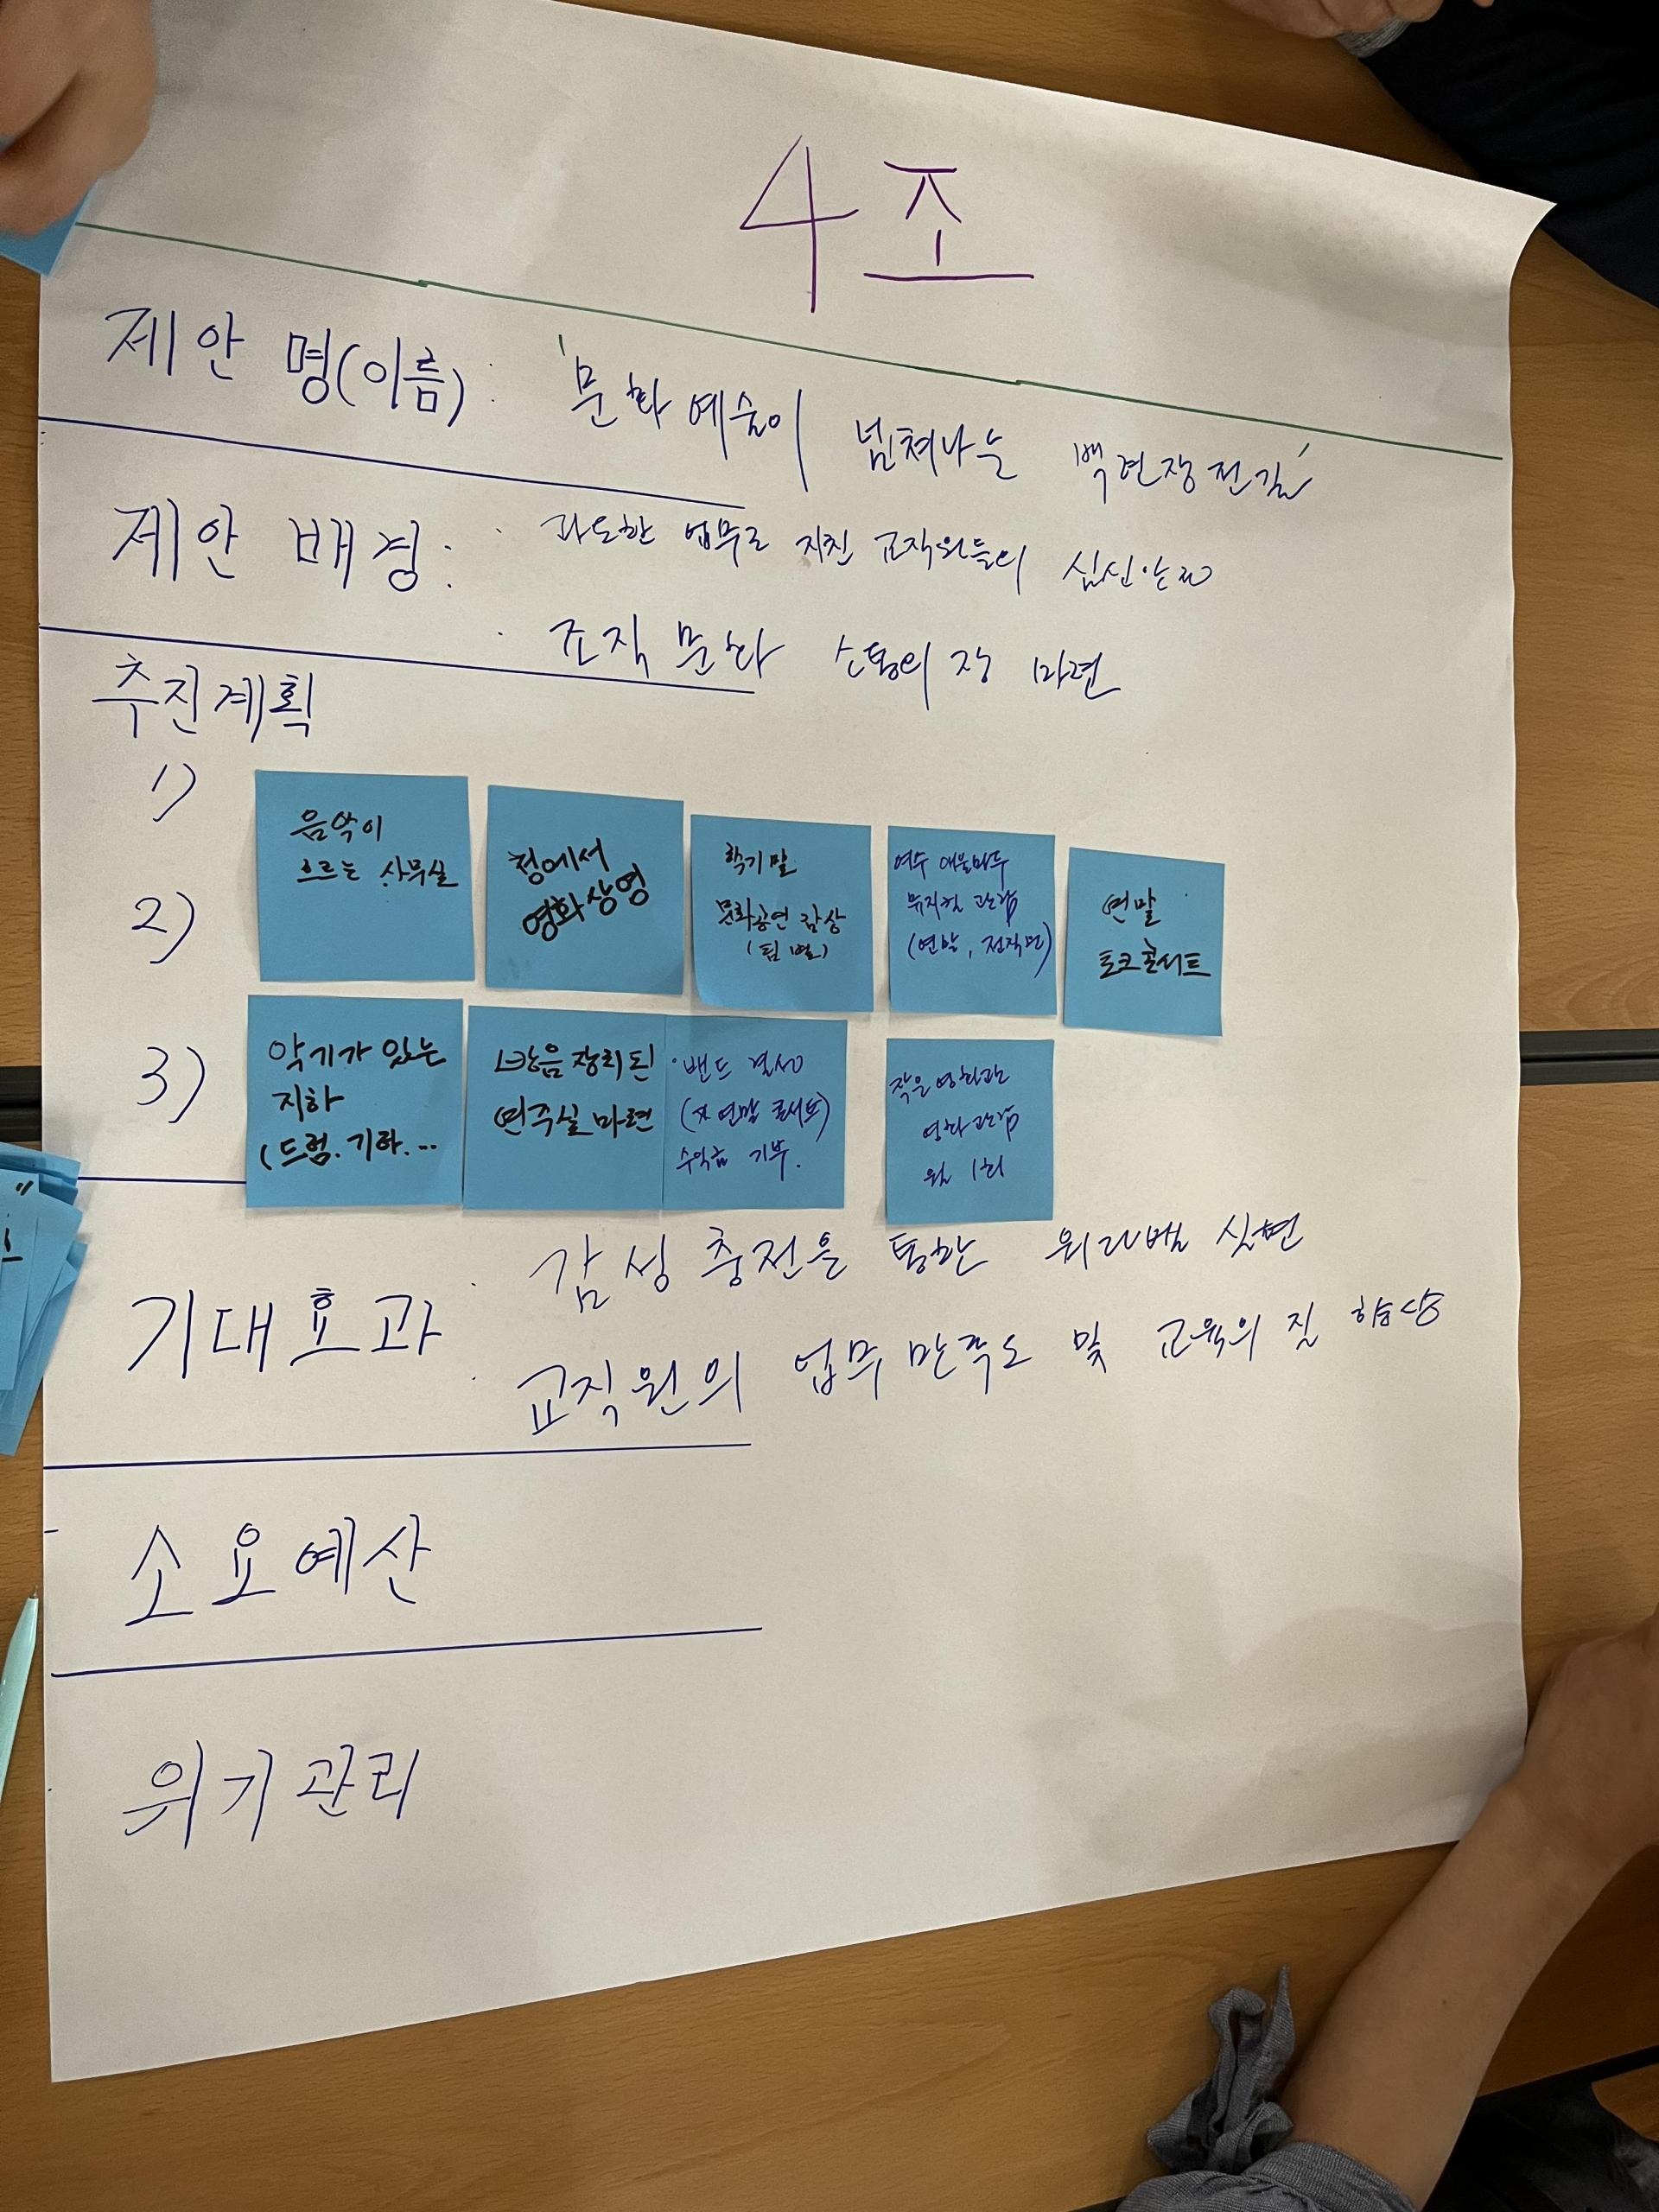 4조
제안 명(이름) : '문화예술이 넘쳐나는 백련장전길'
제안 배경 : · 과도한 업무로 지친 교직원들의 심신안정
· 조직 문화 소통의 장 마련
추진계획
1)
2)
3)
음악이
흐르는 사무실
청에서
영화상영
학기말
문화공연 감상
(팀별)
여수 예울마루
뮤지컬 관람
(연말, 전직원)
연말
토크콘서트
악기가 있는
지하
(드럼. 기타. ...
방음장치된
연주실 마련
· 밴드 결성
(연말 콘서트)
수익금 기부.
작은영화관
영화관람
월 1회
기대효과 · 감성충전을 통한 워라밸 실현
· 교직원의 업무만족도 및 교육의 질 향상
소요예산
위기관리